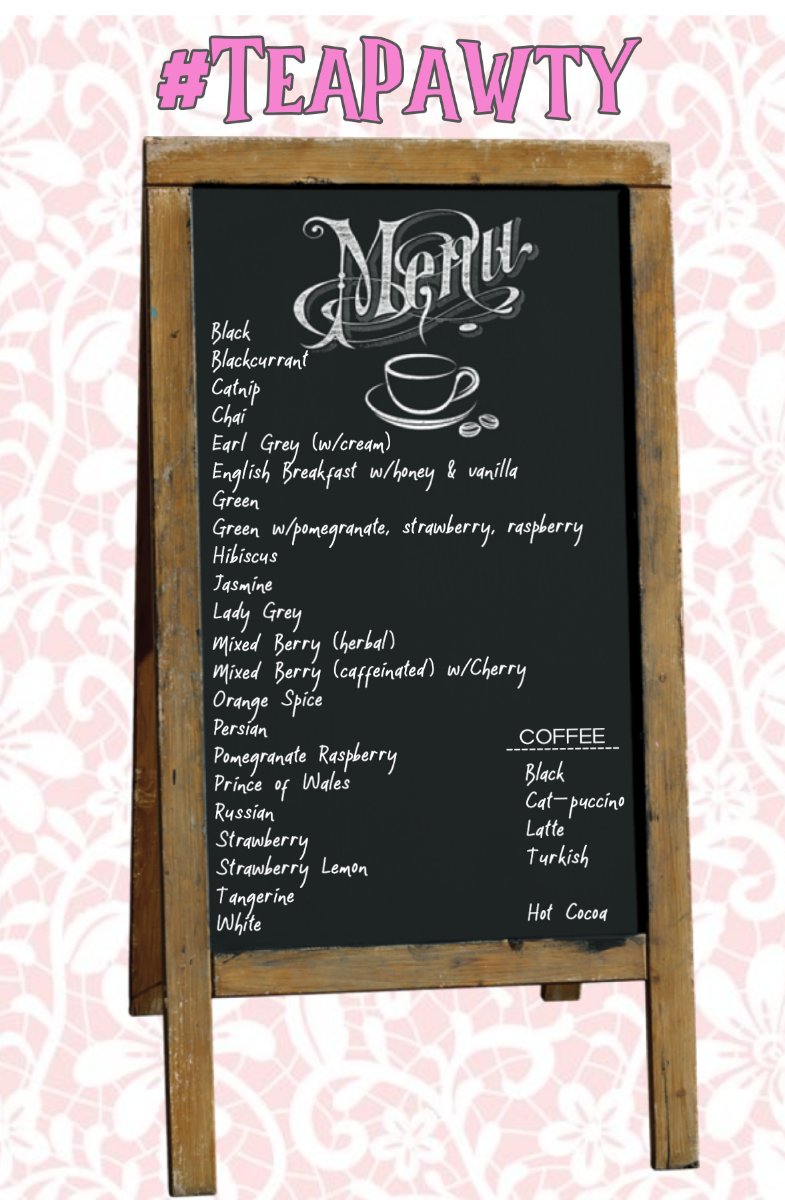 #TEAPAWTY
Menu
Black
Blackcurrant
Catnip
Chai
Earl Grey (w/cream)
English Breakfast w/honey & vanilla
Green
Green w/pomegranate, strawberry, raspberry
Hibiscus
Jasmine
Lady Grey
Mixed Berry (herbal)
Mixed Berry (caffeinated) w/Cherry
Orange Spice
Persian
Pomegranate Raspberry
Prince of Wales
Russian
Strawberry
Strawberry Lemon
Tangerine
White
COFFEE
Black
Cat-puccino
Latte
Turkish
Hot Cocoa